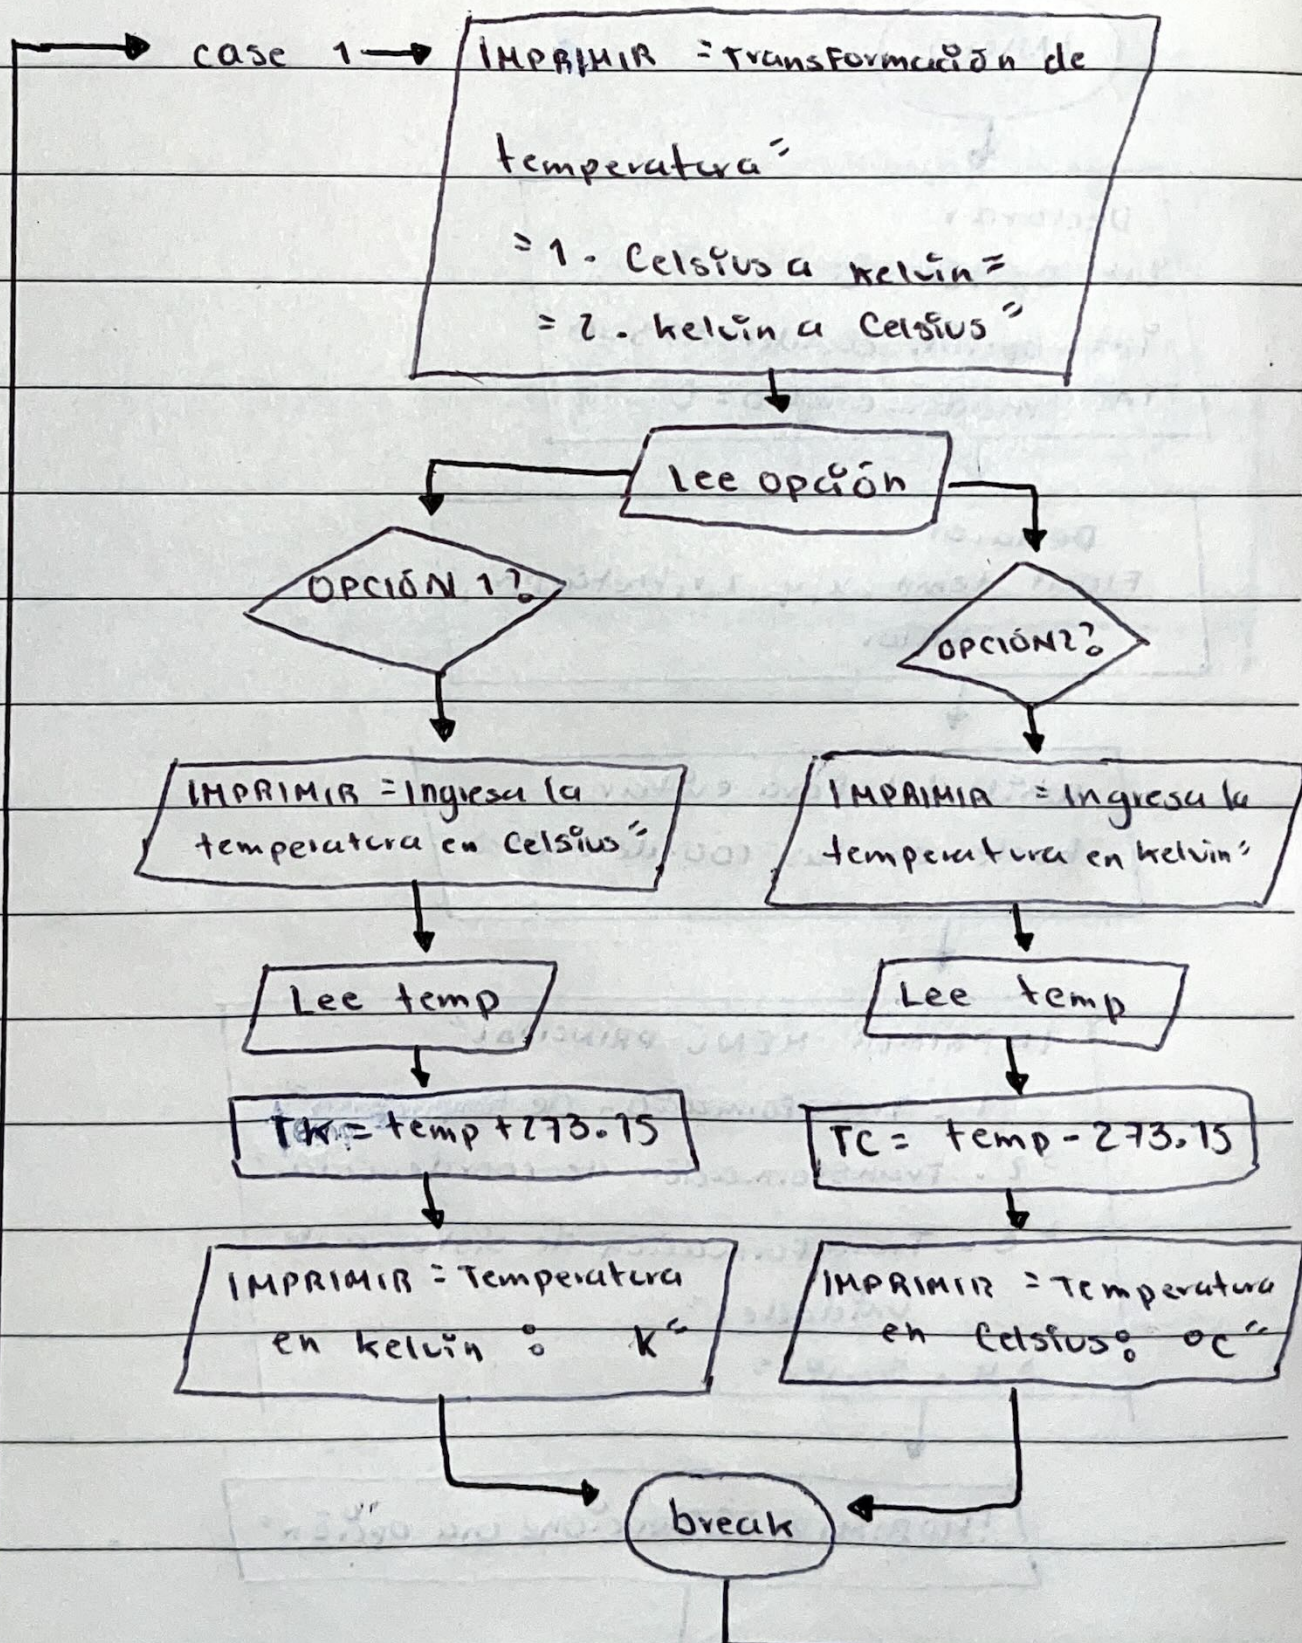 case 1
IMPRIMIR "Transformación de
temperatura"
"1. Celsius a Kelvin"
"2. Kelvin a Celsius"
Lee opción
OPCIÓN 1?
OPCIÓN 2?
IMPRIMIR "Ingresa la
temperatura en Celsius"
IMPRIMIR "Ingresa la
temperatura en Kelvin"
Lee temp
Lee temp
TK = temp + 273.15
TC = temp - 273.15
IMPRIMIR "Temperatura
en Kelvin : K"
IMPRIMIR "Temperatura
en Celsius: °C"
break